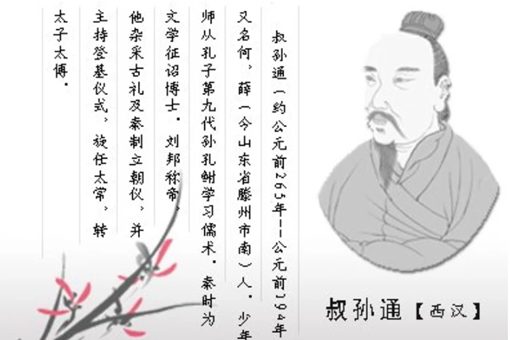 叔孙通（约公元前265年--公元前194年
又名何，薛（今山东省滕州市南）人。少年
师从孔子第九代孙孔鲋学习儒术。秦时为
文学征诏博士。刘邦称帝，
他杂采古礼及秦制立朝仪，并
主持登基仪式。旋任太常，转
太子太傅。
叔孙通【西汉】